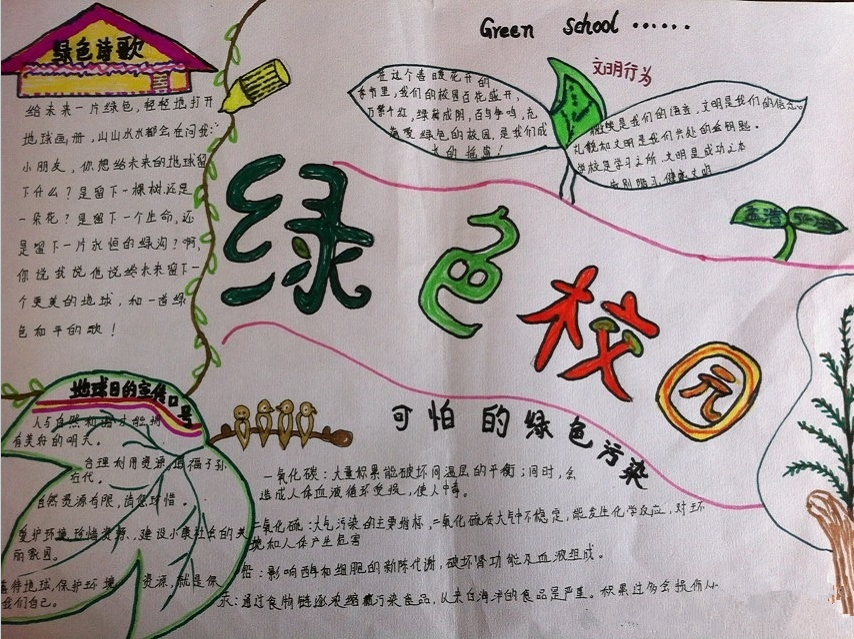 Green school ······
绿色诗歌
给未来一片绿色，轻轻地打开
地球画册，山山水水都会在问我：
小朋友，你想给未来的地球留
下什么？是留下一棵树，还是
一朵花？是留下一个生命，还
是留下一片永恒的绿沟？啊，
你说我说他说给未来留下一
个更美的地球，和一首绿
色和平的歌！
在这个春暖花开的
季节里，我们的校园百花盛开，
万紫千红，绿树成阴，百鸟争鸣，
绿色的校园，是我们成
长的摇篮！
文明行为
是我们的语言，文明是我们的信念。
礼貌和文明是我们共处的金钥匙。
学校是学习之所，文明是成功之本
绿色校园
地球日的宣传口号
人与自然和谐
有美好的明天。
合理利用资源，造福子孙
后代。
自然资源有限，请您珍惜。
爱护环境，珍惜资源，建设小康社会的美
丽家园。
善待地球，保护环境 资源，就是保
我们自己。
可怕的绿色污染
一氧化碳：大量积累能破坏同温层的平衡；同时，会
造成人体血液循环受损，使人中毒。
二氧化硫：大气污染的主要指标，二氧化硫在大气中不稳定，能发生化学反应，对环
境和人体产生危害
铅：影响酶和细胞的新陈代谢，破坏肾功能及血液组成。
汞：通过食物链逐次浓缩污染食品，从来自海洋的食品是严重。积累过多会损伤